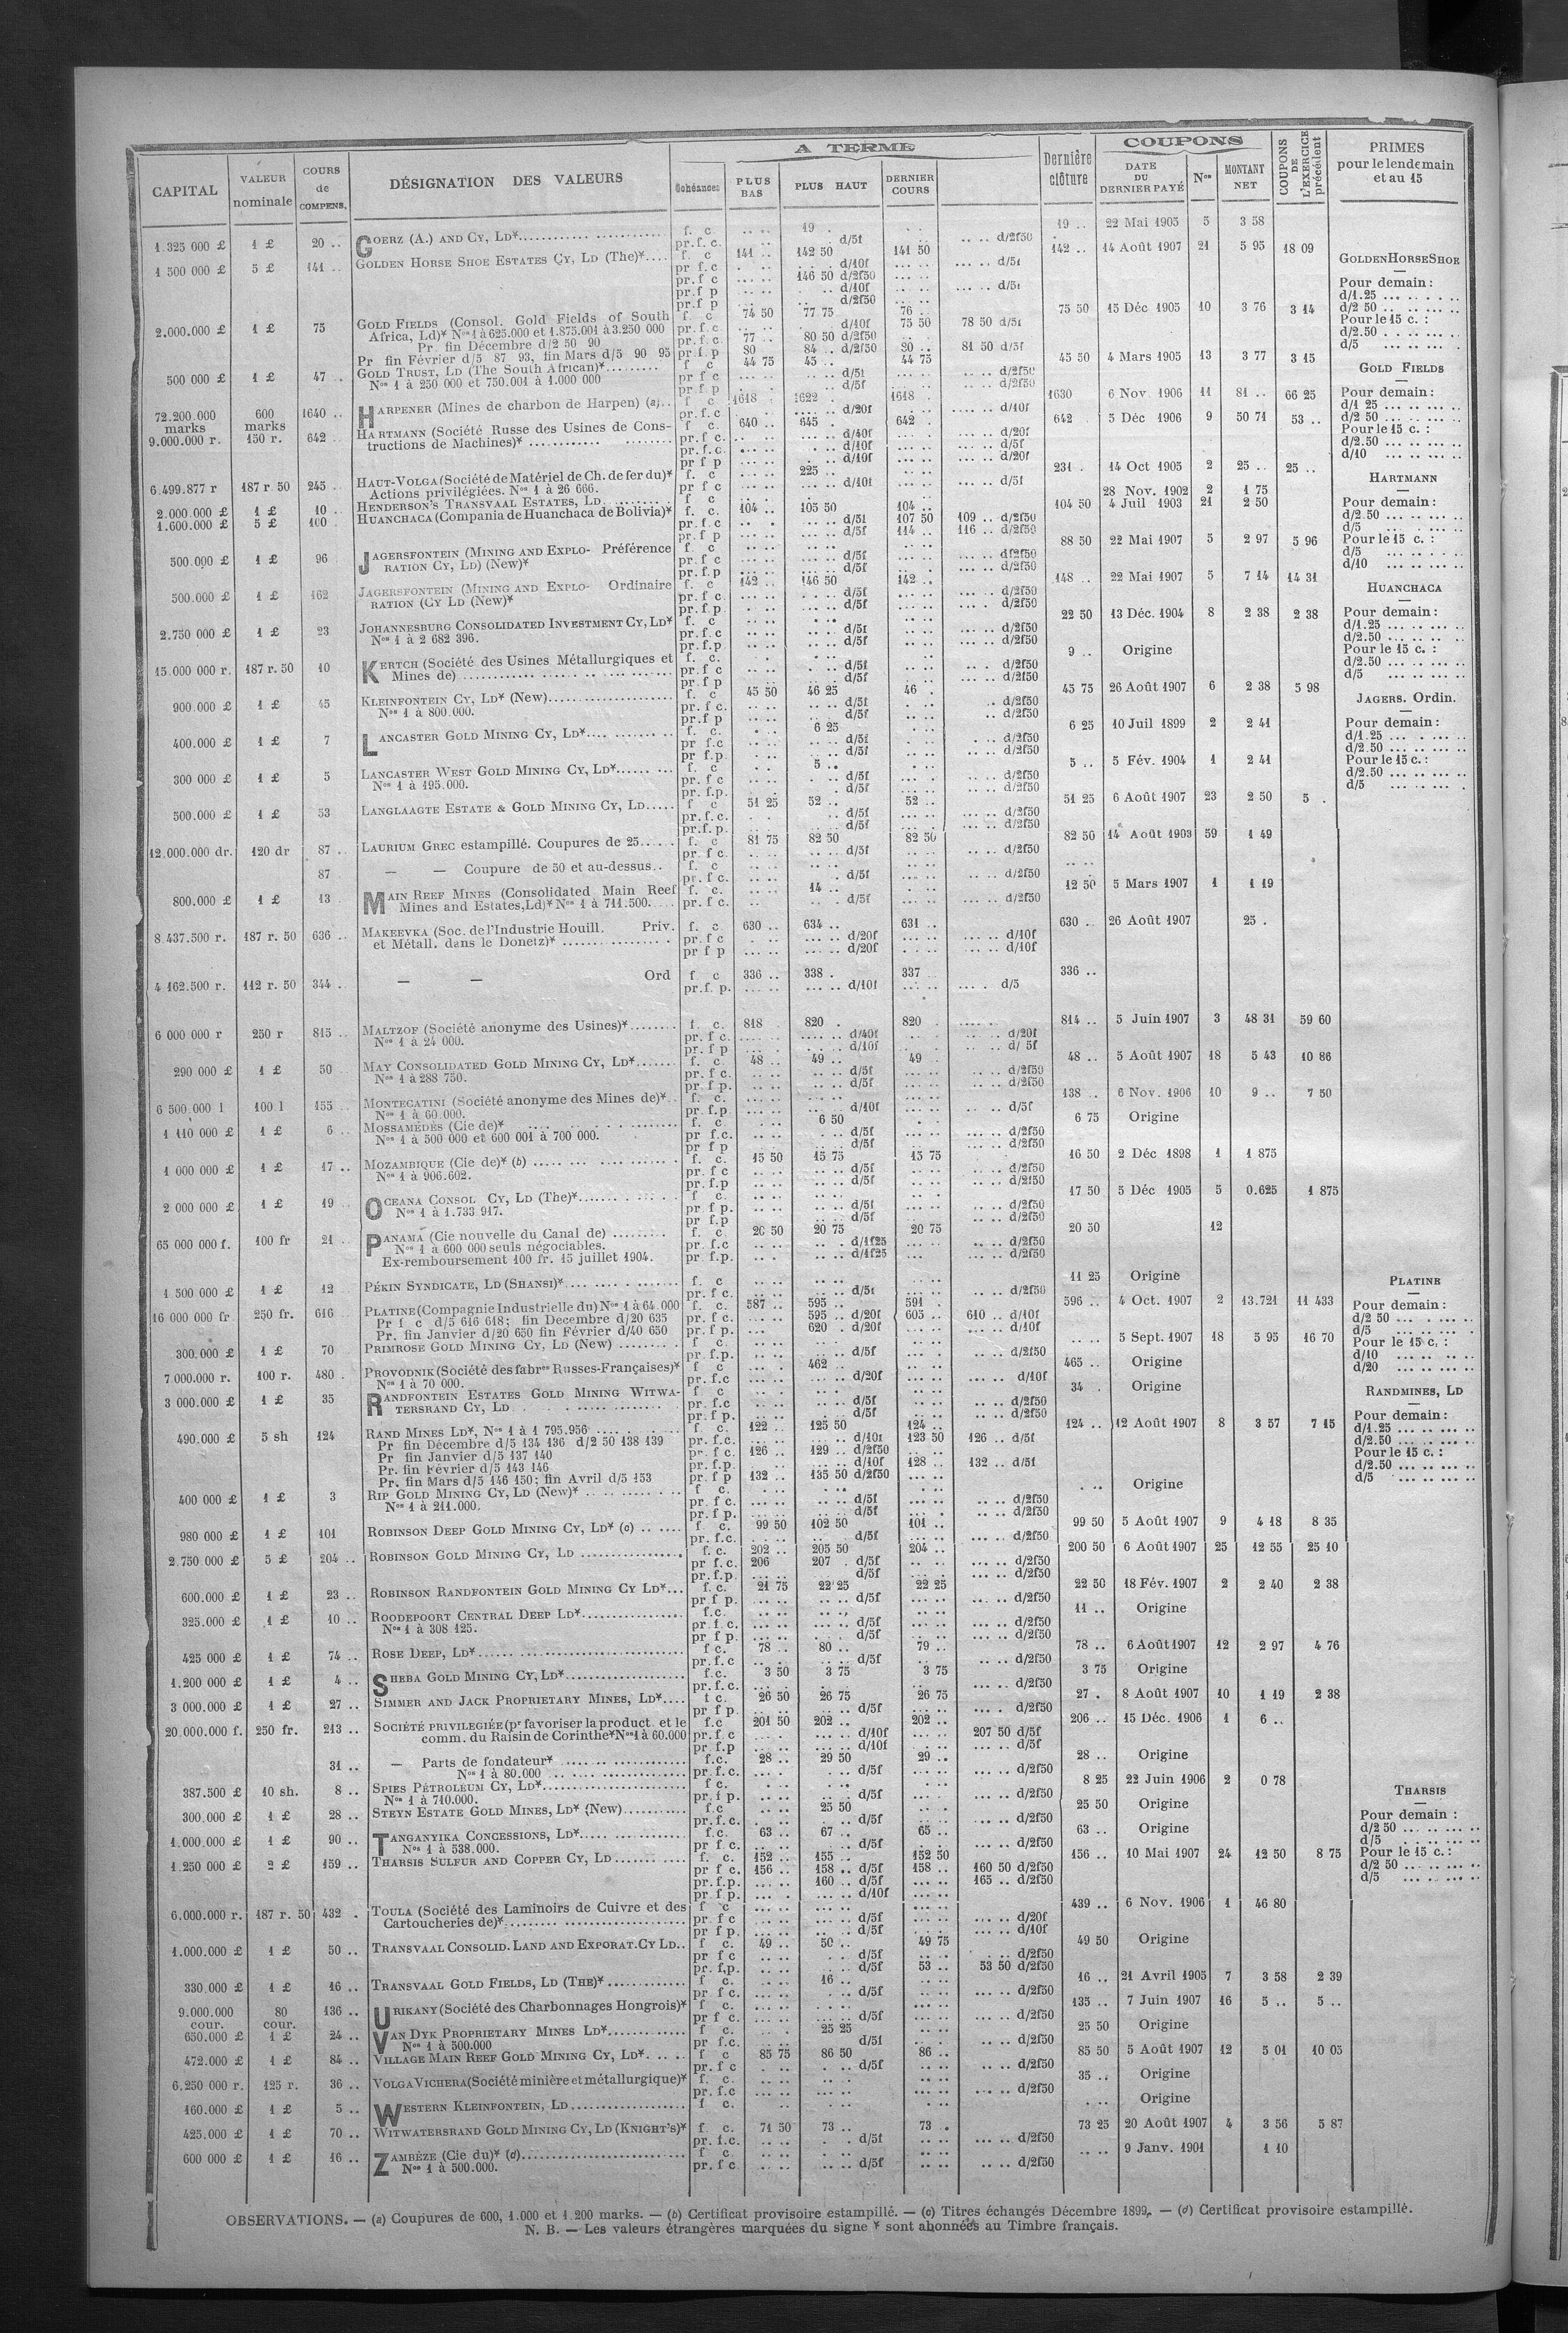 A TERME
COUPONS
CAPITAL
VALEUR nominale
COURS de COMPENS.
DÉSIGNATION DES VALEURS
Échéances
PLUS BAS
PLUS HAUT
DERNIER COURS
Dernière clôture
DATE DU DERNIER PAYÉ
Nos
MONTANT NET
COUPONS DE L'EXERCICE précédent
PRIMES pour le lendemain et au 15
1.325 000 £ 1 £ 20 .. GOERZ (A.) AND CY, LD* f. c. 19 . 19 .. 22 Mai 1905 5 3 58
pr.f.c. d/5f d/2f50
1 500 000 £ 5 £ 141 .. GOLDEN HORSE SHOE ESTATES CY, LD (The)* f. c 141 .. 142 50 141 50 142 .. 14 Août 1907 21 5 95 18 09
pr f.c d/10f d/5f
pr.f c 146 50 d/2f50
pr.f p d/10f d/5f
pr.f p d/2f50
2.000.000 £ 1 £ 75 GOLD FIELDS (Consol. Gold Fields of South f. c 74 50 77 75 76 .. 75 50 15 Déc 1905 10 3 76 3 14
Africa, Ld)* Nos 1 à 625.000 et 1.875.001 à 3.250 000 pr.f.c. d/10f 75 50 78 50 d/5f
Pr. fin Décembre d/2 50 90 pr.f.c. 77 .. 80 50 d/2f50 80 .. 81 50 d/5f
Pr fin Février d/5 87 93, fin Mars d/5 90 95 pr.f.p 80 84 .. d/2f50
500 000 £ 1 £ 47 . GOLD TRUST, LD (The South African)* f c 44 75 45 .. 44 75 45 50 4 Mars 1905 13 3 77 3 15
Nos 1 à 250 000 et 750.001 à 1.000 000 pr f c d/5f d/2f50
pr.f p d/5f d/2f50
72.200.000 marks 600 marks 1640 .. HARPENER (Mines de charbon de Harpen) (a) f c 1618 . 1622 . 1618 . 1630 6 Nov 1906 11 81 .. 66 25
pr.f.c d/20f d/10f
9.000.000 r. 150 r. 642 .. HARTMANN (Société Russe des Usines de Cons- f c. 640 .. 645 . 642 . 642 5 Déc 1906 9 50 71 53 ..
tructions de Machines)* pr.f c. d/40f d/20f
pr.f.c. d/10f d/5f
pr f p d/10f d/20f
6.499.877 r 187 r. 50 245 .. HAUT-VOLGA (Société de Matériel de Ch. de fer du)* f. c 225 .. 231 . 14 Oct 1905 2 25 .. 25 ..
Actions privilégiées. Nos 1 à 26 666. pr f c d/10f d/5f
2.000.000 £ 1 £ 10 .. HENDERSON'S TRANSVAAL ESTATES, LD f c 28 Nov. 1902 2 1 75
1.600.000 £ 5 £ 100 .. HUANCHACA (Compania de Huanchaca de Bolivia)* f. c. 104 .. 105 50 104 .. 104 50 4 Juil 1903 21 2 50
pr.f c d/5f 107 50 109 .. d/2f50
pr.f p d/5f 114 .. 116 .. d/2f50
500.000 £ 1 £ 96 JAGERSFONTEIN (MINING AND EXPLO- Préférence f. c 88 50 22 Mai 1907 5 2 97 5 96
RATION CY, LD) (New)* pr f c d/5f d/2f50
pr.f.p d/5f d/2f50
500.000 £ 1 £ 162 JAGERSFONTEIN (MINING AND EXPLO- Ordinaire f. c 142 .. 146 50 142 .. 148 .. 22 Mai 1907 5 7 14 14 31
RATION (CY LD (New)* pr f c d/5f d/2f50
pr.f.p. d/5f d/2f50
2.750 000 £ 1 £ 23 JOHANNESBURG CONSOLIDATED INVESTMENT CY, LD* f. c 22 50 13 Déc. 1904 8 2 38 2 38
Nos 1 à 2 682 396. pr.f.c d/5f d/2f50
pr.f.p. d/5f d/2f50
15.000 000 r. 187 r. 50 10 KERTCH (Société des Usines Métallurgiques et f. c. 9 .. Origine
Mines de) pr.f c d/5f d/2f50
pr f p d/5f d/2f50
900.000 £ 1 £ 45 KLEINFONTEIN CY, LD* (New) f. c 45 50 46 25 46 . 45 75 26 Août 1907 6 2 38 5 98
Nos 1 à 800.000. pr. f c. d/5f d/2f50
pr.f p d/5f d/2f50
400.000 £ 1 £ 7 LANCASTER GOLD MINING CY, LD* f. c. 6 25 6 25 10 Juil 1899 2 2 41
pr f.c d/5f d/2f50
pr f.p. d/5f d/2f50
300 000 £ 1 £ 5 LANCASTER WEST GOLD MINING CY, LD* f. c 5 .. 5 .. 5 Fév. 1904 1 2 41
Nos 1 à 195.000. pr. f c d/5f d/2f50
pr. f.p. d/5f d/2f50
500.000 £ 1 £ 53 LANGLAAGTE ESTATE & GOLD MINING CY, LD f c 51 25 52 .. 52 .. 51 25 6 Août 1907 23 2 50 5 .
pr.f.c. d/5f d/2f50
pr.f.p. d/5f d/2f50
12.000.000 dr. 120 dr 87 .. LAURIUM GREC estampillé. Coupures de 25 f. c 81 75 82 50 82 50 82 50 14 Août 1903 59 1 49
pr f c. d/5f d/2f50
87 — — Coupure de 50 et au-dessus f. c
pr. f c. d/5f d/2f50
800.000 £ 1 £ 13 MAIN REEF MINES (Consolidated Main Reef f. c. 14 .. 12 50 5 Mars 1907 1 1 19
Mines and Estates, Ld)* Nos 1 à 711.500. pr. f c. d/5f d/2f50
8 437.500 r. 187 r. 50 636 .. MAKEEVKA (Soc. de l'Industrie Houill. Priv. f. c. 630 .. 634 .. 631 .. 630 .. 26 Août 1907 25 .
et Métall. dans le Donetz)* pr.f c d/20f d/10f
pr f p d/20f d/10f
4 162.500 r. 112 r. 50 344 . — — Ord f c 336 .. 338 . 337 336 ..
pr.f. p. d/10f d/5
6 000 000 r 250 r 815 .. MALTZOF (Société anonyme des Usines)* f. c. 818 820 . 820 . 814 .. 5 Juin 1907 3 48 31 59 60
Nos 1 à 24 000. pr. f c. d/40f d/20f
pr. f p d/10f d/ 5f
290 000 £ 1 £ 50 MAY CONSOLIDATED GOLD MINING CY, LD* f. c. 48 .. 49 .. 49 . 48 .. 5 Août 1907 18 5 43 10 86
Nos 1 à 288 750. pr. f c. d/5f d/2f50
pr f p. d/5f d/2f50
6 500.000 l 100 l 155 .. MONTECATINI (Société anonyme des Mines de)* f. c. 138 .. 6 Nov. 1906 10 9 .. 7 50
Nos 1 à 60.000. pr. f.p d/10f d/5f
1 110 000 £ 1 £ 6 .. MOSSAMÉDÈS (Cie de)* f. c. 6 50 6 75 Origine
Nos 1 à 500 000 et 600 001 à 700 000. pr f.c. d/5f d/2f50
pr f p d/5f d/2f50
1 000 000 £ 1 £ 17 .. MOZAMBIQUE (Cie de)* (b) f. c. 15 50 15 75 15 75 16 50 2 Déc 1898 1 1 875
Nos 1 à 906.602. pr. f c d/5f d/2f50
pr. f.p d/5f d/2f50
2 000 000 £ 1 £ 19 OCEANA CONSOL CY, LD (The)* f c. 17 50 5 Déc 1905 5 0.625 1 875
Nos 1 à 1.733 917. pr f p. d/5f d/2f50
pr f.p d/5f d/2f50
65 000 000 f. 100 fr 21 .. PANAMA (Cie nouvelle du Canal de) f. c 20 50 20 75 20 75 20 50 12
Nos 1 à 600 000 seuls négociables. pr. f.c d/1f25 d/2f50
Ex-remboursement 100 fr. 15 juillet 1904. pr. f.p. d/1f25 d/2f50
1 500 000 £ 1 £ 12 PÉKIN SYNDICATE, LD (SHANSI)* f. c 11 25 Origine
pr. f c. d/5f d/2f50
16 000 000 fr 250 fr. 616 PLATINE (Compagnie Industrielle du) Nos 1 à 64.000 f. c. 587 .. 595 .. 591 . 596 .. 4 Oct. 1907 2 13.721 11 433
Pr f c d/5 616 618; fin Decembre d/20 635 pr. f c. 595 .. d/20f 605 .. 610 .. d/10f
Pr. fin Janvier d/20 650 fin Février d/40 650 pr. f p. 620 . d/20f d/10f
300.000 £ 1 £ 70 PRIMROSE GOLD MINING CY, LD (New) f c. 5 Sept. 1907 18 5 95 16 70
pr. f.p. d/5f d/2f50
7 000.000 r. 100 r. 480 . PROVODNIK (Société des fabres Russes-Françaises)* f c 462 .. 465 .. Origine
Nos 1 à 70 000. pr. f.c d/20f d/10f
3 000.000 £ 1 £ 35 RANDFONTEIN ESTATES GOLD MINING WITWA- f c 34 . Origine
TERSRAND CY, LD pr. f.c d/5f d/2f50
pr. f p. d/5f d/2f50
490.000 £ 5 sh 124 RAND MINES LD*, Nos 1 à 1 795.956 f. c. 122 .. 125 50 124 .. 124 .. 12 Août 1907 8 3 57 7 15
Pr fin Décembre d/5 134 136 d/2 50 138 139 pr. f.c. d/10f 123 50 126 .. d/5f
Pr fin Janvier d/5 137 140 pr. f c. 126 .. 129 .. d/2f50
Pr. fin Février d/5 143 146 pr. f.p. d/10f 128 .. 132 .. d/5f
Pr. fin Mars d/5 146 150; fin Avril d/5 153 pr. f p 132 .. 135 50 d/2f50
400 000 £ 1 £ 3 RIP GOLD MINING CY, LD (New)* f c. Origine
Nos 1 à 211.000. pr. f c. d/5f d/2f50
pr. f p. d/5f d/2f50
980 000 £ 1 £ 101 ROBINSON DEEP GOLD MINING CY, LD* (c) f. c. 99 50 102 50 101 .. 99 50 5 Août 1907 9 4 18 8 35
pr. f.c. d/5f d/2f50
2.750.000 £ 5 £ 204 .. ROBINSON GOLD MINING CY, LD f. c. 202 .. 205 50 204 .. 200 50 6 Août 1907 25 12 55 25 10
pr f.c. 206 207 . d/5f d/2f50
pr.f.p. d/5f d/2f50
600.000 £ 1 £ 23 .. ROBINSON RANDFONTEIN GOLD MINING CY LD* f. c. 21 75 22 25 22 25 22 50 18 Fév. 1907 2 2 40 2 38
pr f p. d/5f d/2f50
325.000 £ 1 £ 10 .. ROODEPOORT CENTRAL DEEP LD* f.c. 11 .. Origine
Nos 1 à 308 125. pr.f.c. d/5f d/2f50
pr f p. d/5f d/2f50
425 000 £ 1 £ 74 .. ROSE DEEP, LD* f c. 78 .. 80 .. 79 .. 78 .. 6 Août 1907 12 2 97 4 76
pr. f.c d/5f d/2f50
1.200 000 £ 1 £ 4 .. SHEBA GOLD MINING CY, LD* f.c. 3 50 3 75 3 75 3 75 Origine
pr.f.c. d/2f50
3 000.000 £ 1 £ 27 .. SIMMER AND JACK PROPRIETARY MINES, LD* f c. 26 50 26 75 26 75 27 . 8 Août 1907 10 1 19 2 38
pr f p. d/5f d/2f50
20.000.000 f. 250 fr. 213 .. SOCIÉTÉ PRIVILEGIÉE (pr favoriser la product. et le f.c 201 50 202 .. 202 .. 206 .. 15 Déc. 1906 1 6 ..
comm. du Raisin de Corinthe* Nos 1 à 60.000 pr.f c d/10f 207 50 d/5f
pr.f.p d/10f d/5f
31 .. — Parts de fondateur* f.c. 28 .. 29 50 29 .. 28 .. Origine
Nos 1 à 80.000 pr.f.c. d/5f d/2f50
387.500 £ 10 sh. 8 .. SPIES PÉTROLEUM CY, LD* f c. 8 25 22 Juin 1906 2 0 78
Nos 1 à 710.000. pr. f p. d/5f d/2f50
300.000 £ 1 £ 28 .. STEYN ESTATE GOLD MINES, LD* (New) f.c 25 50 25 50 Origine
pr.f.c. d/5f d/2f50
1.000.000 £ 1 £ 90 .. TANGANYIKA CONCESSIONS, LD* f.c. 63 .. 67 .. 65 .. 63 .. Origine
Nos 1 à 538.000. pr f c. d/5f d/2f50
1.250 000 £ 2 £ 159 .. THARSIS SULFUR AND COPPER CY, LD f. c. 152 .. 155 .. 152 50 156 .. 10 Mai 1907 24 12 50 8 75
pr f c. 156 .. 158 .. d/5f 158 .. 160 50 d/2f50
pr.f.p. 160 .. d/5f 165 .. d/2f50
pr f.p. d/10f
6.000.000 r. 187 r. 50 432 . TOULA (Société des Laminoirs de Cuivre et des f c 439 .. 6 Nov. 1906 1 46 80
Cartoucheries de)* pr. f c d/5f d/20f
pr f p. d/5f d/10f
1.000.000 £ 1 £ 50 .. TRANSVAAL CONSOLID. LAND AND EXPORAT. CY LD f c. 49 .. 50 .. 49 75 49 50 Origine
pr f c d/5f d/2f50
pr. f,p. d/5f 53 .. 53 50 d/2f50
330.000 £ 1 £ 16 .. TRANSVAAL GOLD FIELDS, LD (THE)* f c. 16 .. 16 .. 21 Avril 1905 7 3 58 2 39
pr f c. d/5f d/2f50
9.000.000 cour. 80 cour. 136 .. URIKANY (Société des Charbonnages Hongrois)* f c. 135 .. 7 Juin 1907 16 5 .. 5 ..
pr f c. d/5f d/2f50
650.000 £ 1 £ 24 .. VAN DYK PROPRIETARY MINES LD* f c. 25 25 25 50 Origine
Nos 1 à 500.000 pr f.c. d/5f d/2f50
472.000 £ 1 £ 84 .. VILLAGE MAIN REEF GOLD MINING CY, LD* f c 85 75 86 50 86 .. 85 50 5 Août 1907 12 5 01 10 05
pr. f c d/5f d/2f50
6.250 000 r. 125 r. 36 .. VOLGA VICHERA (Société minière et métallurgique)* f. c. 35 .. Origine
pr. f.c d/2f50
160.000 £ 1 £ 5 .. WESTERN KLEINFONTEIN, LD f c. Origine
425.000 £ 1 £ 70 .. WITWATERSRAND GOLD MINING CY, LD (KNIGHT'S)* f. c. 71 50 73 .. 73 . 73 25 20 Août 1907 4 3 56 5 87
pr. f.c. d/5f d/2f50
600 000 £ 1 £ 16 .. ZAMBÈZE (Cie du)* (d) f c 9 Janv. 1901 1 10
Nos 1 à 500.000. pr. f c d/5f d/2f50
GOLDEN HORSE SHOE
Pour demain:
d/1.25
d/2 50
Pour le 15 c. :
d/2.50
d/5
GOLD FIELDS
Pour demain:
d/1 25
d/2 50
Pour le 15 c. :
d/2.50
d/10
HARTMANN
Pour demain:
d/2.50
d/5
Pour le 15 c. :
d/5
d/10
HUANCHACA
Pour demain:
d/1.25
d/2.50
Pour le 15 c. :
d/2.50
d/5
JAGERS. Ordin.
Pour demain:
d/1.25
d/2.50
Pour le 15 c. :
d/2.50
d/5
PLATINE
Pour demain:
d/2 50
d/5
Pour le 15 c. :
d/10
d/20
RANDMINES, LD
Pour demain:
d/1.25
d/2.50
Pour le 15 c. :
d/2.50
d/5
THARSIS
Pour demain :
d/2 50
d/5
Pour le 15 c. :
d/2 50
d/5
OBSERVATIONS. — (a) Coupures de 600, 1.000 et 1.200 marks. — (b) Certificat provisoire estampillé. — (c) Titres échangés Décembre 1899. — (d) Certificat provisoire estampillé.
N. B. — Les valeurs étrangères marquées du signe * sont abonnées au Timbre français.